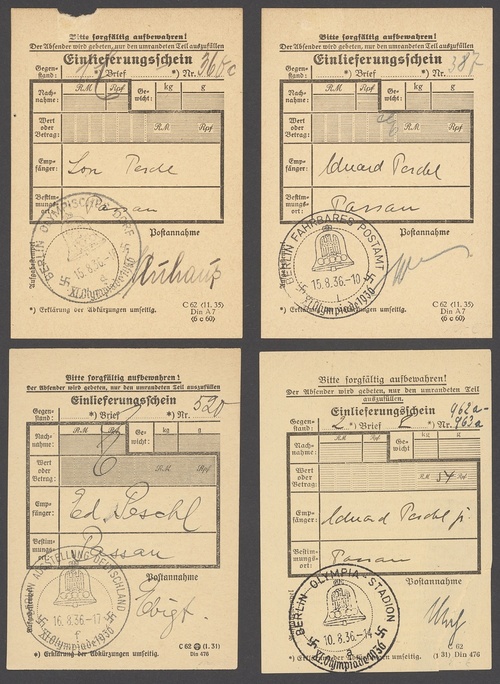 Bitte sorgfältig aufbewahren!
Der Absender wird gebeten, nur den umrandeten Teil auszufüllen
Einlieferungsschein
Gegen-
stand: *) Brief *) Nr. 360c
Nach-
nahme: RM Rpf Ge-
wicht: kg g
Wert
oder
Betrag: RM Rpf
Emp-
fänger:
Bestim-
mungs-
ort: Passau
Postannahme
BERLIN OLYMPISCHES DORF
15.8.36
XI. Olympiade 1936
*) Erklärung der Abkürzungen umseitig.
C 62 (11. 35)
Din A 7
(6 c 60)
Bitte sorgfältig aufbewahren!
Der Absender wird gebeten, nur den umrandeten Teil auszufüllen
Einlieferungsschein
Gegen-
stand: *) Brief *) Nr. 387
Nach-
nahme: RM Rpf Ge-
wicht: kg g
Wert
oder
Betrag: RM Rpf
Emp-
fänger: Eduard Peschl
Bestim-
mungs-
ort: Passau
Postannahme
BERLIN FAHRBARES POSTAMT
15.8.36.-10
XI. Olympiade 1936
*) Erklärung der Abkürzungen umseitig.
C 62 (11. 35)
Din A 7
(6 c 60)
Bitte sorgfältig aufbewahren!
Der Absender wird gebeten, nur den umrandeten Teil auszufüllen
Einlieferungsschein
Gegen-
stand: *) Brief *) Nr. 520
Nach-
nahme: RM Rpf Ge-
wicht: kg g
Wert
oder
Betrag: RM Rpf
Emp-
fänger: Ed. Peschl
Bestim-
mungs-
ort: Passau
Postannahme
BERLIN AUSSTELLUNG DEUTSCHLAND
16.8.36.-17
f
XI. Olympiade 1936
*) Erklärung der Abkürzungen umseitig.
C 62 (1. 31)
Din 476
Bitte sorgfältig aufbewahren!
Der Absender wird gebeten, nur den umrandeten Teil
auszufüllen.
Einlieferungsschein 962a-
Gegen-
stand: 2 *) Brief *) Nr. 963a
Nach-
nahme: RM Rpf Ge-
wicht: kg g
Wert
oder
Betrag: RM 54 Rpf
Emp-
fänger: Eduard Peschl jr.
Bestim-
mungs-
ort: Passau
Postannahme
BERLIN-OLYMPIA-STADION
10.8.36.-14
a
XI. Olympiade 1936
*) Erklärung der Abkürzungen umseitig.
C 62
(1 31) Din 476